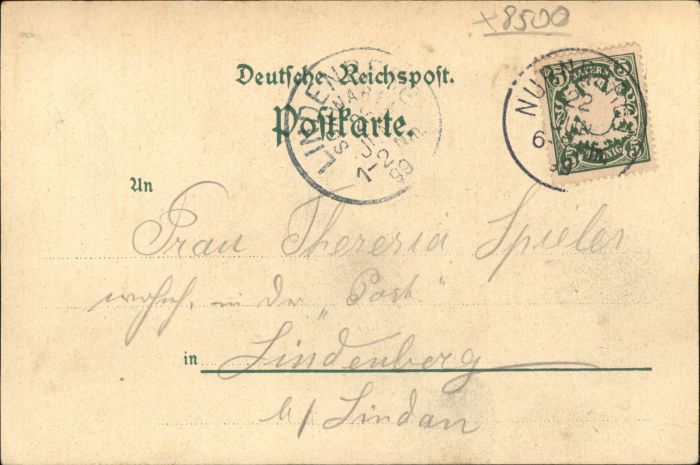 +8500
Deutsche Reichspost.
Postkarte.
LINDENBERG
1-2 NM.
99
NÜRNBERG
6
BAYERN
5 5
5 5
PFENNIG
An
Frau Theresia Spieler
wohnh. in der "Post"
in Lindenberg
b/Lindau